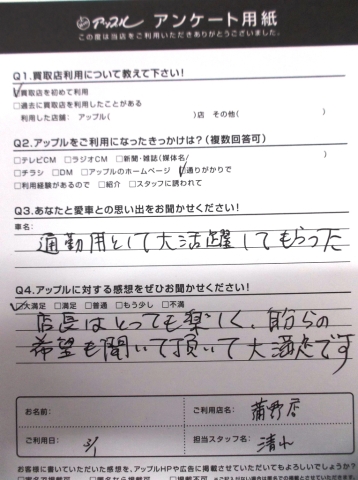 アップル アンケート用紙
この度は当店をご利用いただきありがとうございました。
Q1.買取店利用について教えて下さい!
□買取店を初めて利用
□過去に買取店を利用したことがある
利用した店舗: アップル( )店 その他( )
Q2.アップルをご利用になったきっかけは?(複数回答可)
□テレビCM □ラジオCM □新聞・雑誌(媒体名/ )
□チラシ □DM □アップルのホームページ □通りがかりで
□利用経験があるので □紹介 □スタッフに誘われて
Q3.あなたと愛車との思い出をお聞かせください!
車名:
通勤用として大活躍してもらった
Q4.アップルに対する感想をぜひお聞かせください!
□大満足 □満足 □普通 □もう少し □不満
店長はとっても楽しく、自分らの
希望も聞いて頂いて大満足です
お名前: ご利用店名: 蒲野店
ご利用日: 3/1 担当スタッフ名: 清水
お客様に書いていただいた感想を、アップルHPや広告に掲載させていただいてもよろしいでしょうか?